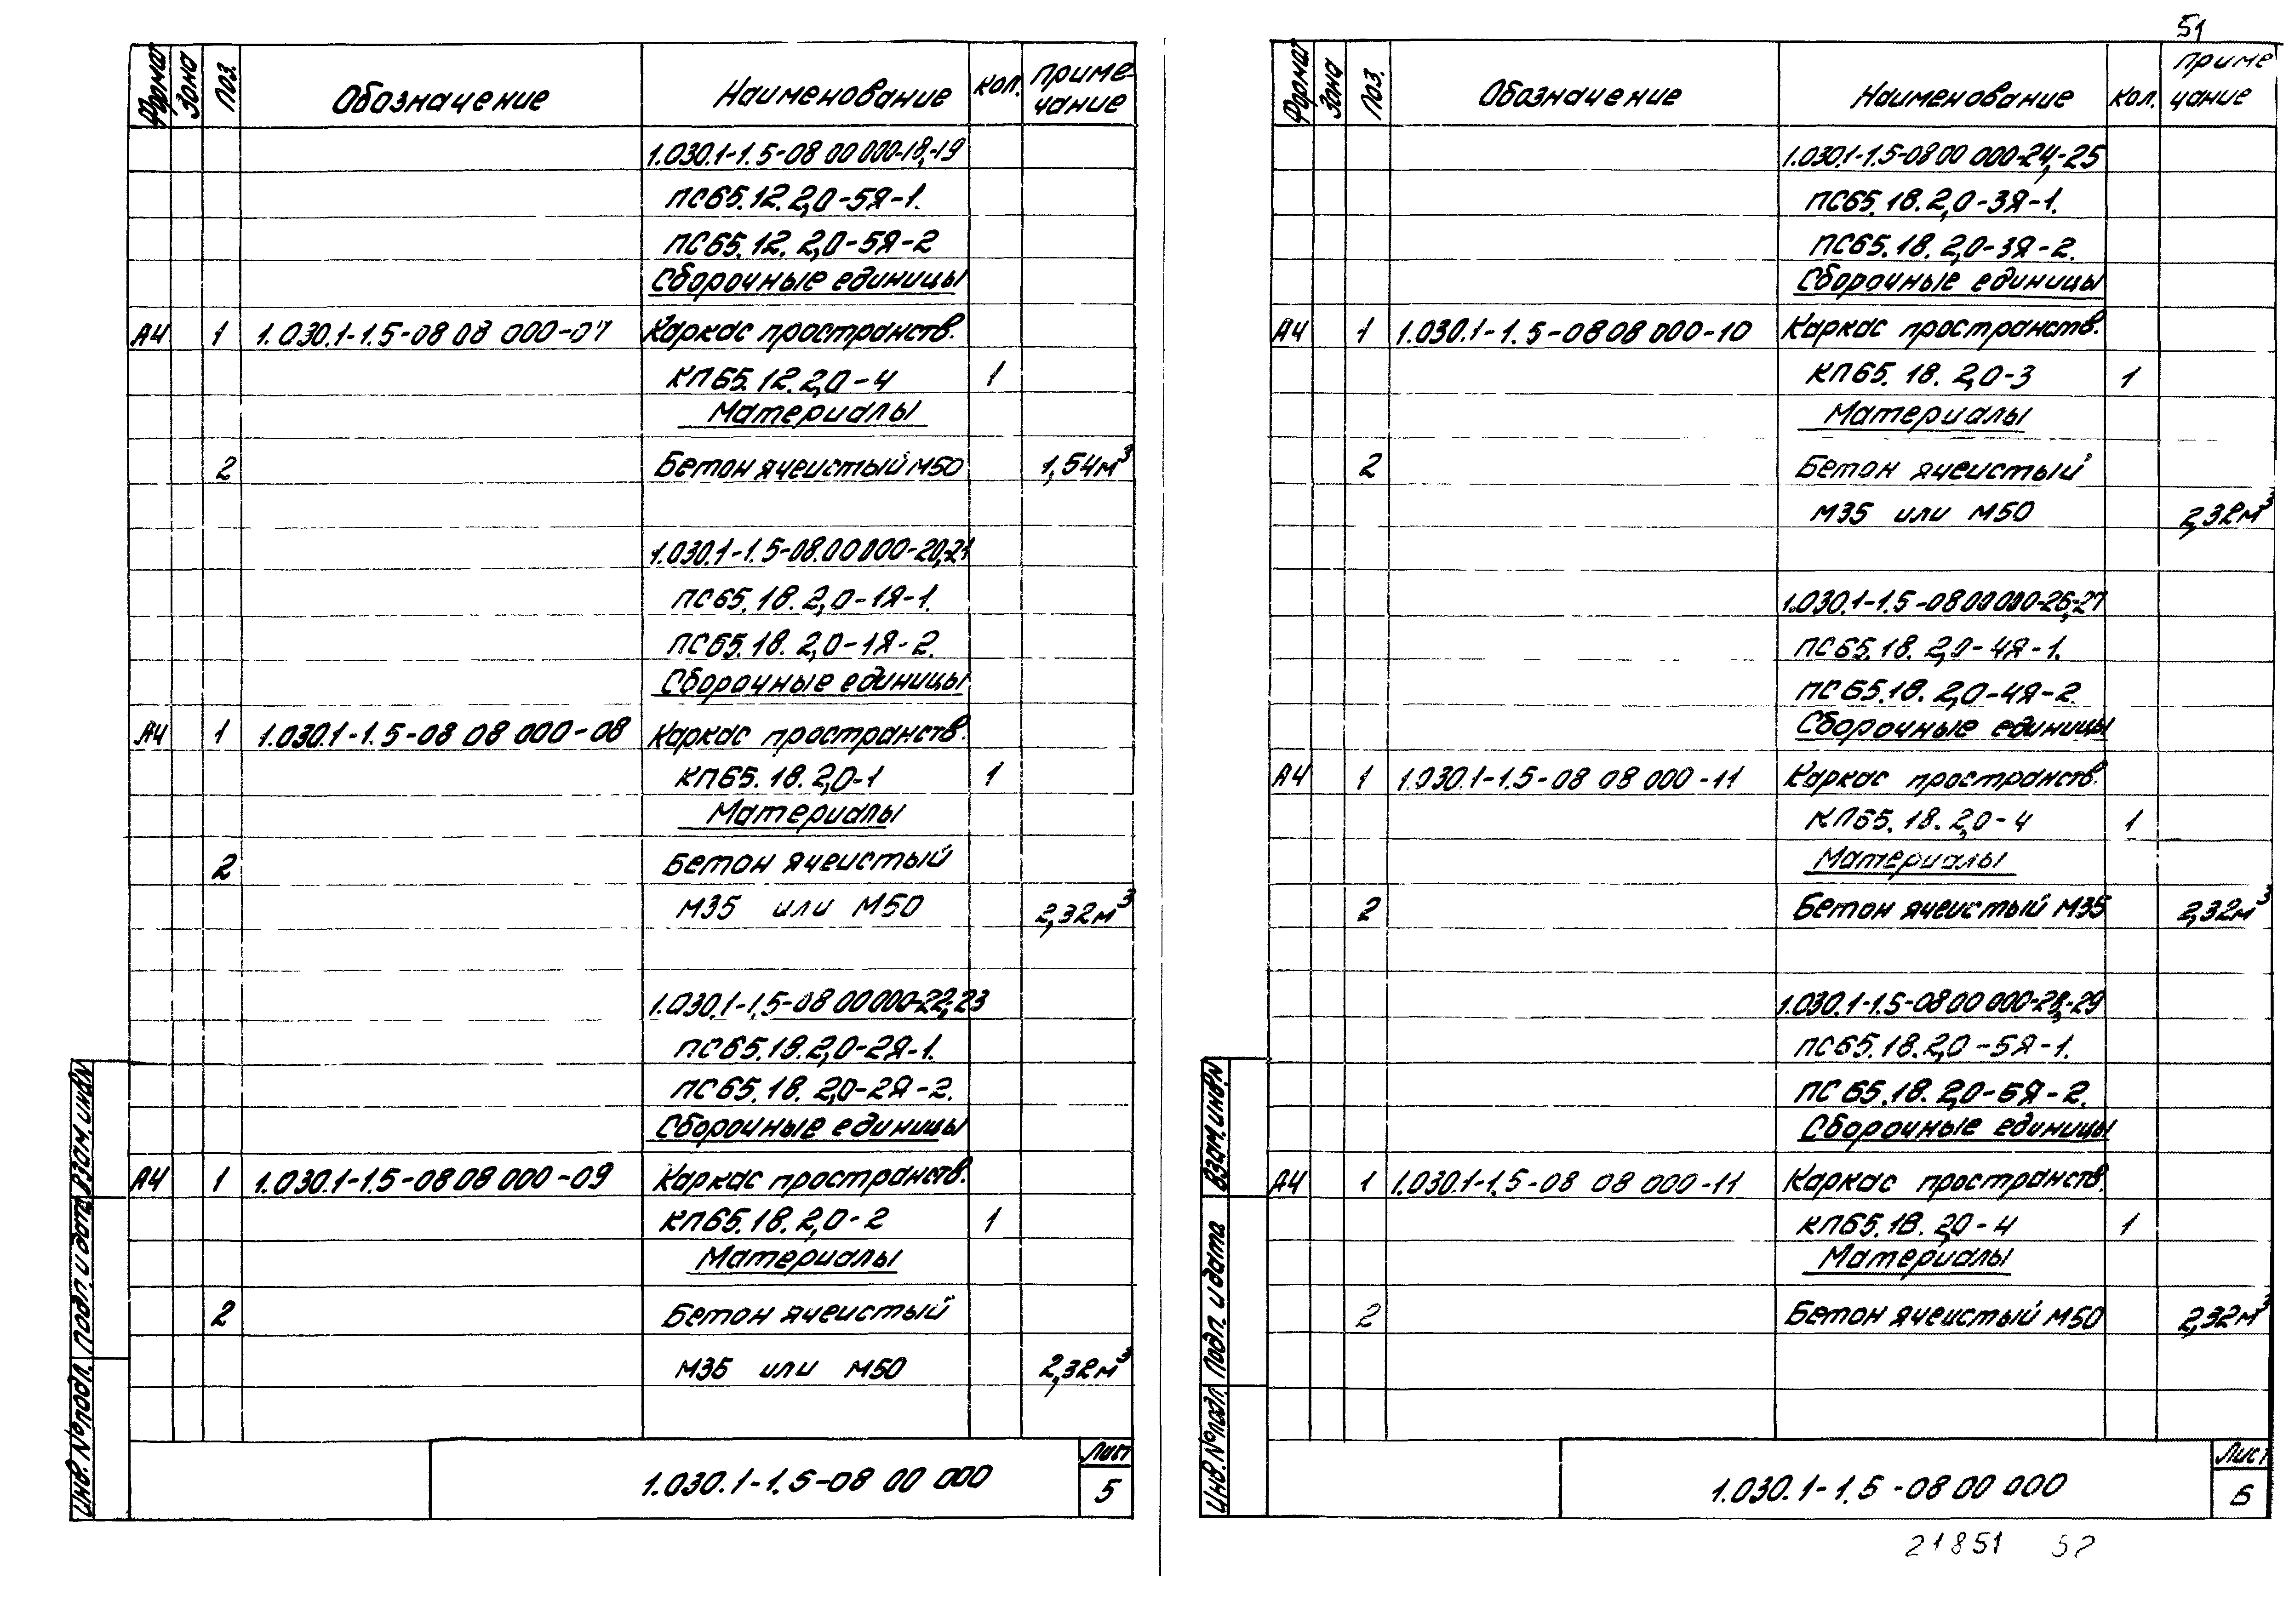 51
Формат Зона Поз. Обозначение Наименование Кол. Приме-
чание
1.030.1-1.5-08 00 000-18,-19
ПС65.12.2,0-5Я-1.
ПС65.12.2,0-5Я-2
Сборочные единицы
А4 1 1.030.1-1.5-08 08 000-07 Каркас пространств.
КП65.12.2,0-4 1
Материалы
2 Бетон ячеистый М50 1,54м³
1.030.1-1.5-08.00 000-20,-21
ПС65.18.2,0-1Я-1.
ПС65.18.2,0-1Я-2.
Сборочные единицы
А4 1 1.030.1-1.5-08 08 000-08 Каркас пространств.
КП65.18.2,0-1 1
Материалы
2 Бетон ячеистый
М35 или М50 2,32м³
1.030.1-1.5-08 00 000-22,-23
ПС65.18.2,0-2Я-1.
ПС65.18.2,0-2Я-2.
Сборочные единицы
А4 1 1.030.1-1.5-08 08 000-09 Каркас пространств.
КП65.18.2,0-2 1
Материалы
2 Бетон ячеистый
М35 или М50 2,32м³
Инв.№подл. Подп. и дата Взам.инв№
1.030.1-1.5-08 00 000
Лист
5
Формат Зона Поз. Обозначение Наименование Кол. Приме
чание
1.030.1-1.5-08 00 000-24,-25
ПС65.18.2,0-3Я-1.
ПС65.18.2,0-3Я-2.
Сборочные единицы
А4 1 1.030.1-1.5-08 08 000-10 Каркас пространств.
КП65.18.2,0-3 1
Материалы
2 Бетон ячеистый
М35 или М50 2,32м³
1.030.1-1.5-08 00 000-26,-27
ПС65.18.2,0-4Я-1.
ПС65.18.2,0-4Я-2.
Сборочные единицы
А4 1 1.030.1-1.5-08 08 000-11 Каркас пространств.
КП65.18.2,0-4 1
Материалы
2 Бетон ячеистый М35 2,32м³
1.030.1-1.5-08 00 000-28,-29
ПС65.18.2,0-5Я-1.
ПС65.18.2,0-5Я-2.
Сборочные единицы
А4 1 1.030.1-1.5-08 08 000-11 Каркас пространств.
КП65.18.2,0-4 1
Материалы
2 Бетон ячеистый М50 2,32м³
Инв.№подл. Подп. и дата Взам.инв№
1.030.1-1.5-08 00 000
Лист
6
21851 52